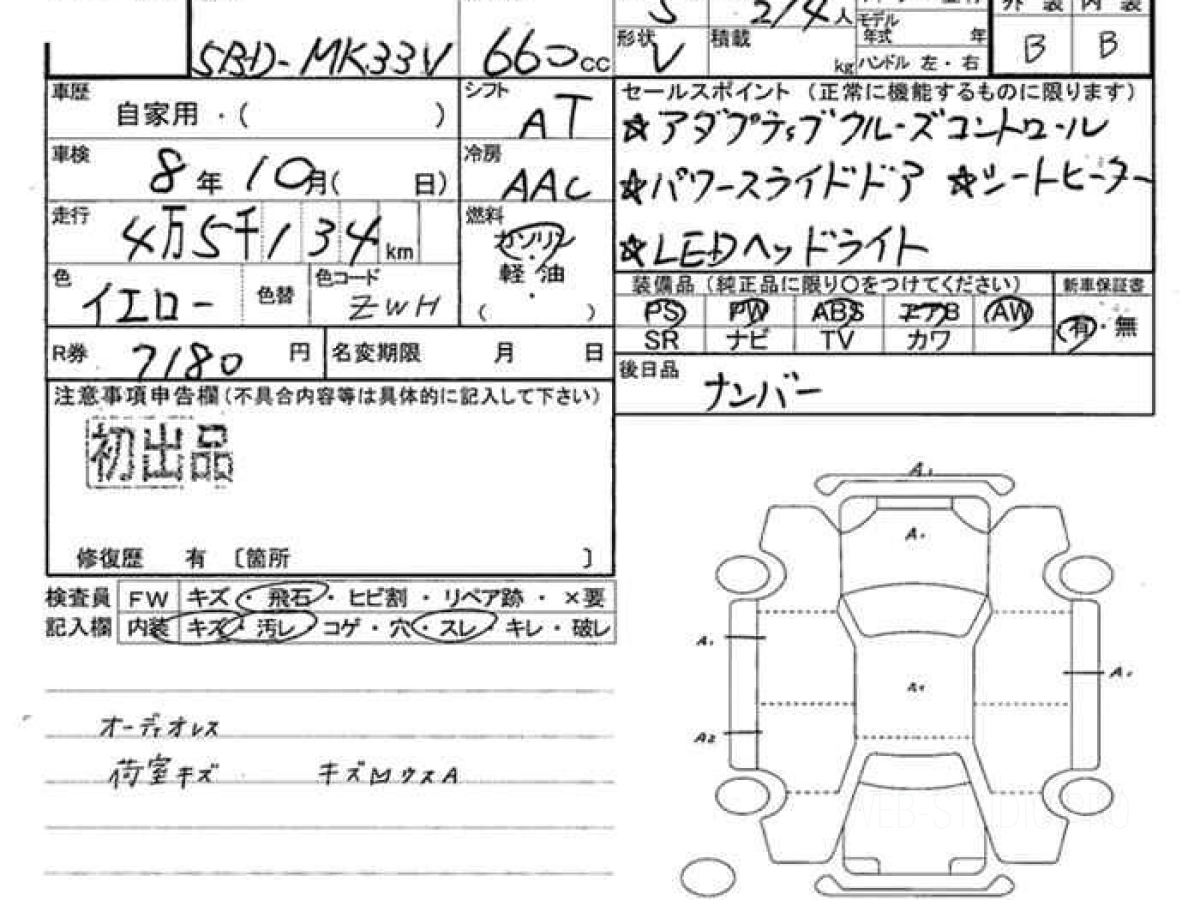 5BD-MK33V
660cc
5
2/4人
モデル
年式 年
外装 内装
形状 V
積載 kg
ハンドル 左・右
B B
車歴 自家用・( )
シフト AT
セールスポイント (正常に機能するものに限ります)
☆アダプティブクルーズコントロール
車検 8年10月( 日)
冷房 AAC
☆パワースライドドア ☆シートヒーター
走行 4万5千134km
燃料 ガソリン
軽・油
・
( )
☆LEDヘッドライト
色 イエロー
色替
色コード ZWH
装備品 (純正品に限り○をつけてください)
新車保証書
PS PW ABS エアB AW
有・無
SR ナビ TV カワ
R券 7180円
名変期限 月 日
後日品 ナンバー
注意事項申告欄(不具合内容等は具体的に記入して下さい)
初出品
修復歴 有 〔箇所 〕
検査員 FW キズ・飛石・ヒビ割・リペア跡・×要
記入欄 内装 キズ・汚レ・コゲ・穴・スレ・キレ・破レ
オーディオレス
荷室キズ キズ凹ウスA
A1
A1
A1
A1
A1
A2
WEB-STUDIO.PRO